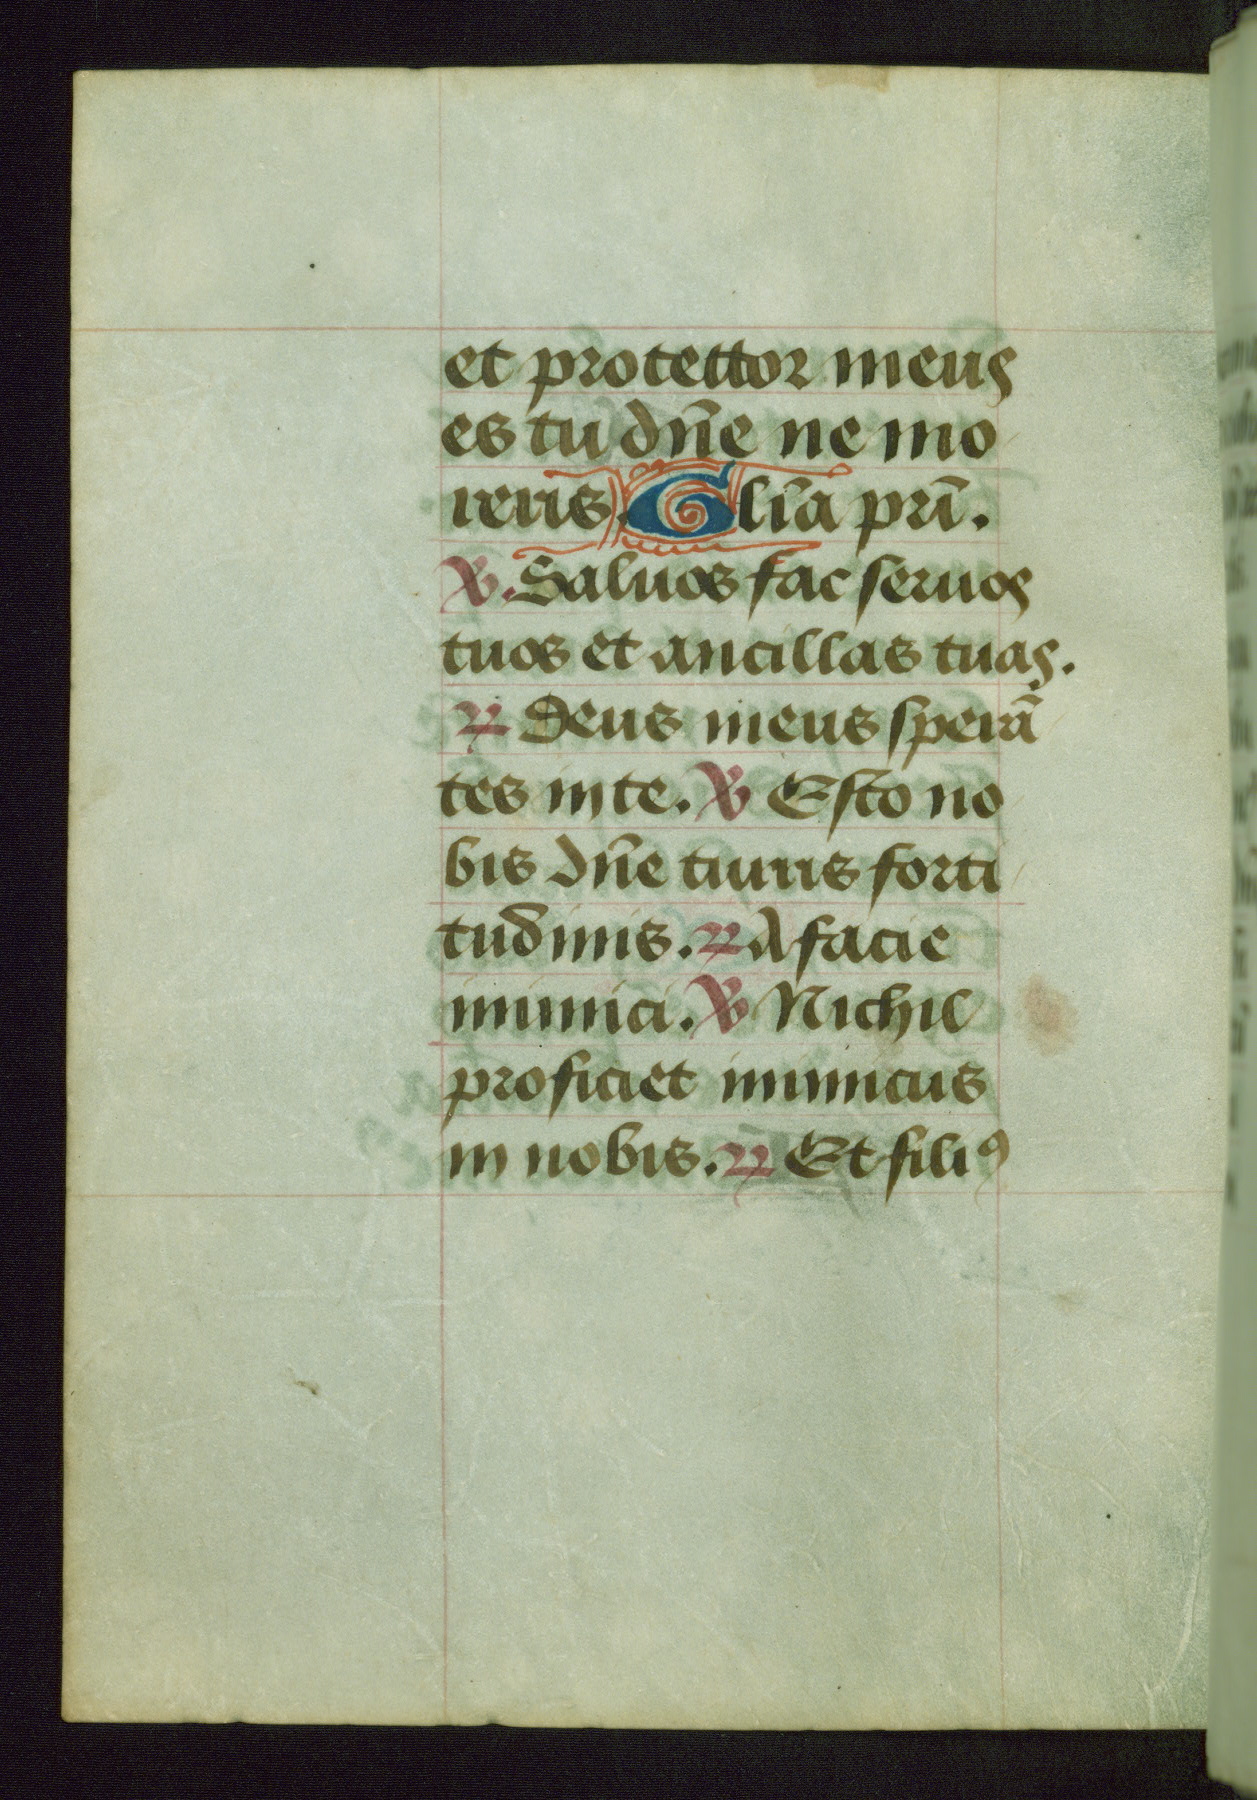 et protector meus
es tu dñe ne mo
reris. Glĩa pr̃i.
℣. Saluos fac seruos
tuos et ancillas tuas.
℟ Deus meus sperã
tes in te. ℣ Esto no
bis dñe turris forti
tudinis. ℟ A facie
inimici. ℣ Nichil
proficiet inimicus
in nobis. ℟ Et filiꝰ